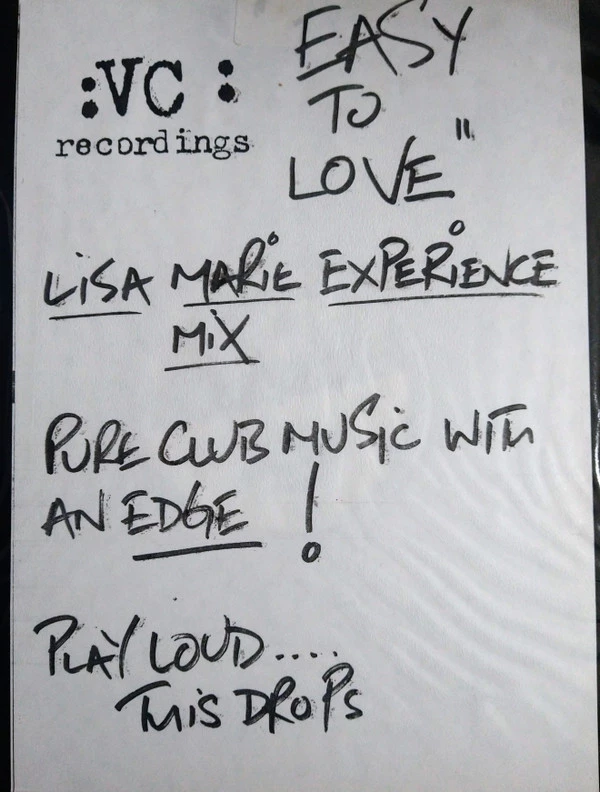 :VC:
recordings
EASY
TO
LOVE"
LiSA MARiE EXPERiENCE
MiX
PURE CLUB MUSiC WITH
AN EDGE !
PLAY LOUD....
THiS DROPS